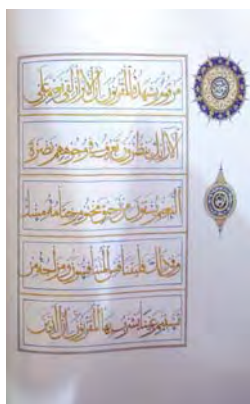 مرقوم يشهده المقربون إن الأبرار لفي نعيم على
الأرائك ينظرون تعرف في وجوههم نضرة
النعيم يسقون من رحيق مختوم ختامه مسك
وفي ذلك فليتنافس المتنافسون ومزاجه من
تسنيم عينا يشرب بها المقربون إن الذين